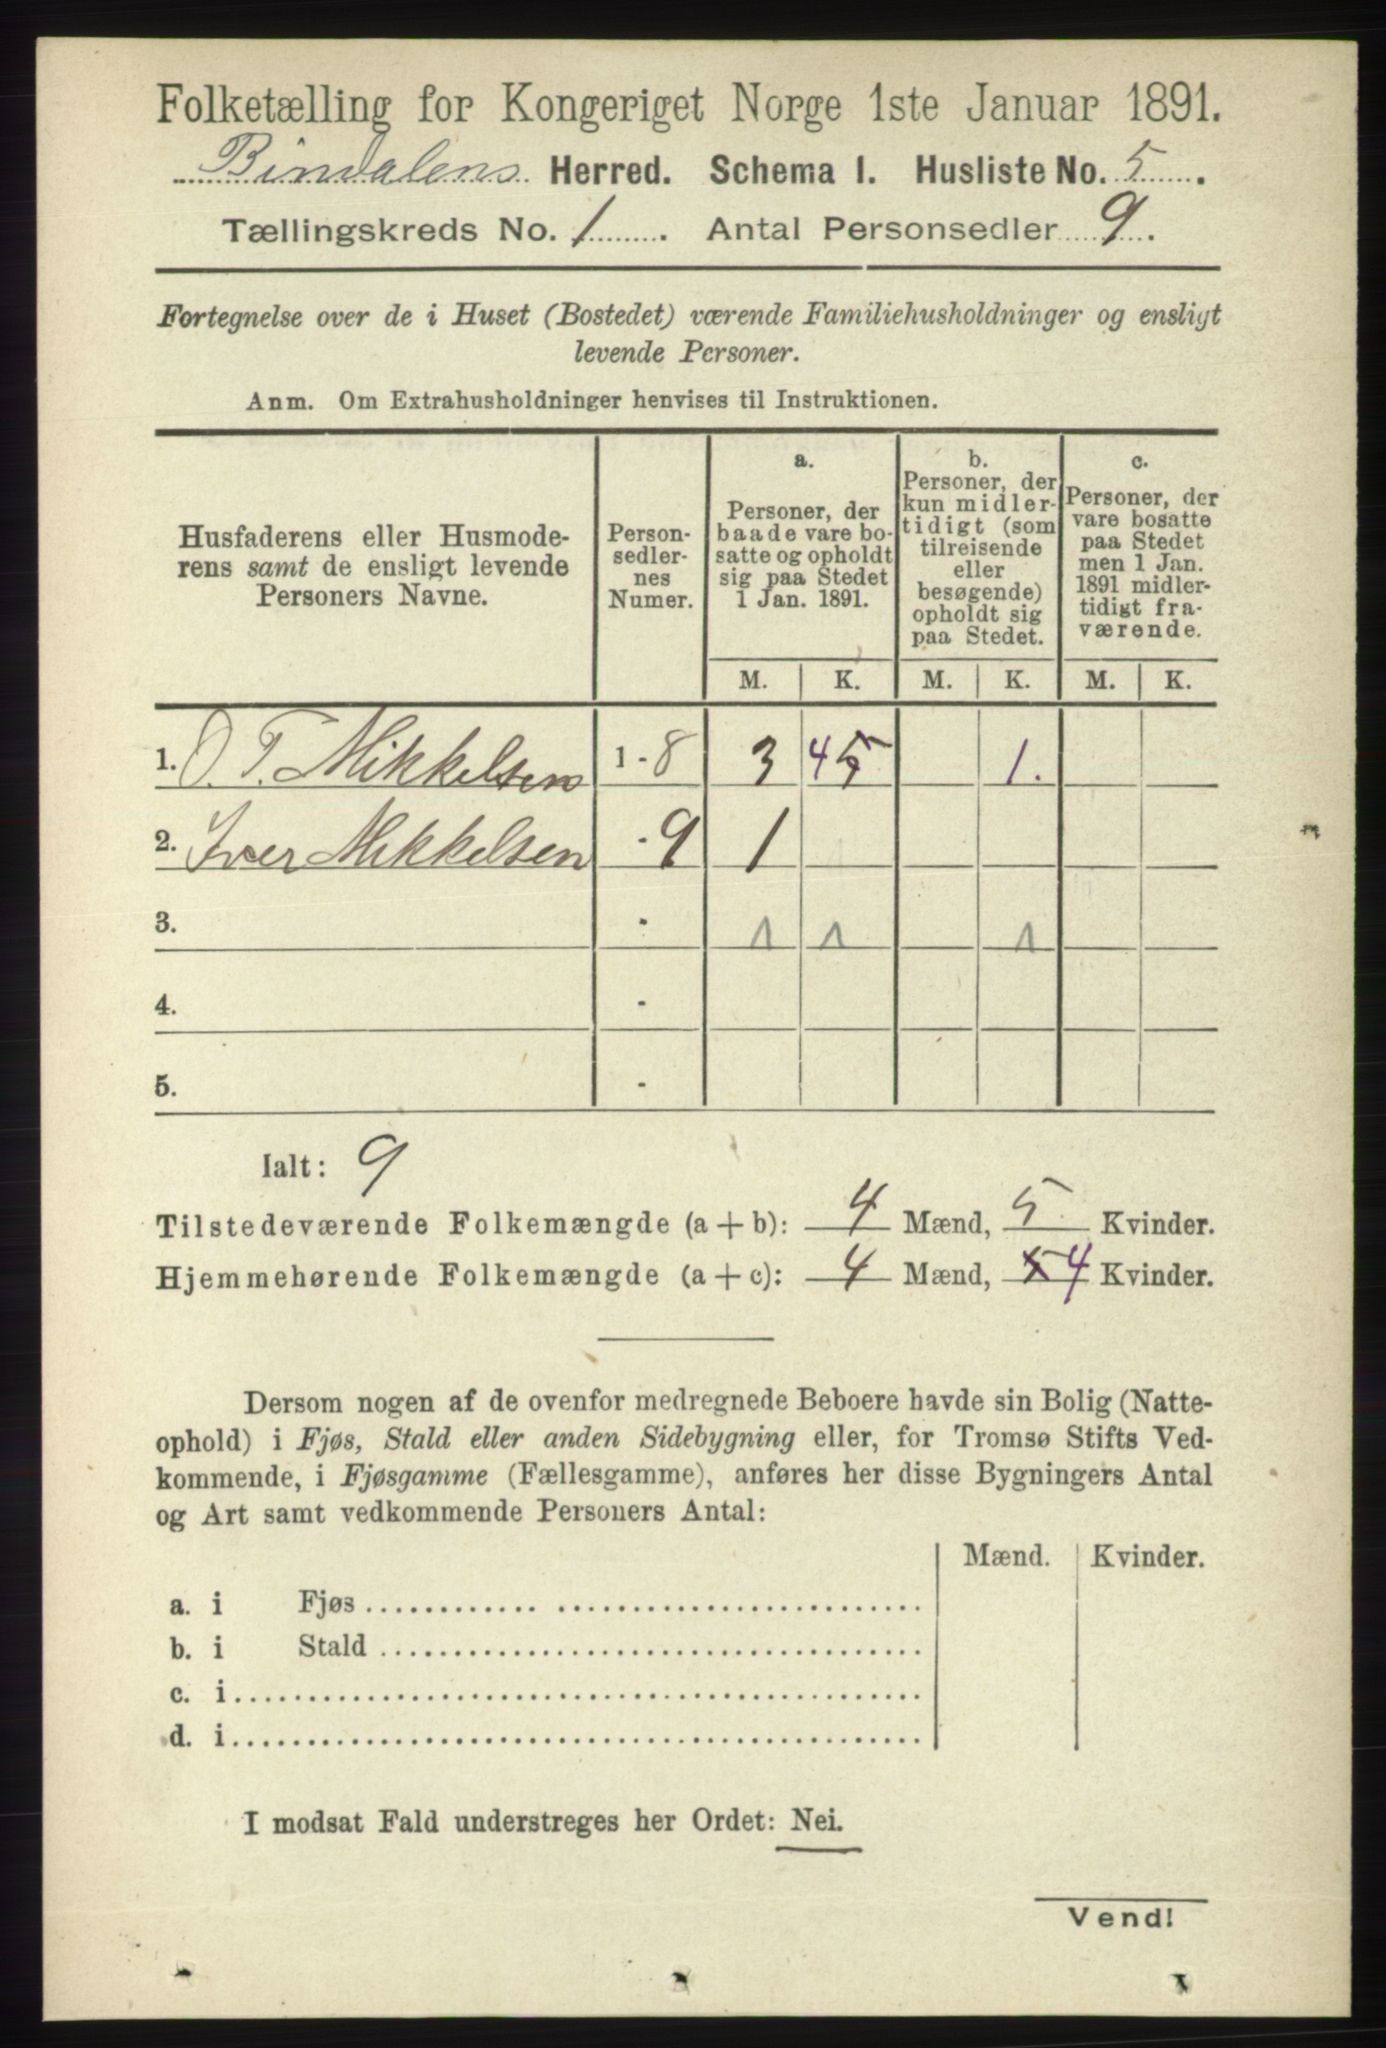 Folketælling for Kongeriget Norge 1ste Januar 1891.
Bindalens Herred. Schema I. Husliste No. 5.
Tællingskreds No. 1. Antal Personsedler 9.
Fortegnelse over de i Huset (Bostedet) værende Familiehusholdninger og ensligt
levende Personer.
Anm. Om Extrahusholdninger henvises til Instruktionen.
Husfaderens eller Husmode-
rens samt de ensligt levende
Personers Navne.
Person-
sedler-
nes
Numer.
a.
Personer, der
baade vare bo-
satte og opholdt
sig paa Stedet
1 Jan. 1891.
b.
Personer, der
kun midler-
tidigt (som
tilreisende
eller
besøgende)
opholdt sig
paa Stedet.
c.
Personer, der
vare bosatte
paa Stedet
men 1 Jan.
1891 midler-
tidigt fra-
værende.
M. K. M. K. M. K.
1. O. T. Mikkelsen 1 - 8 3 4 5 1.
2. Iver Mikkelsen - 9 1
3. - 1 1 1
4. -
5. -
Ialt: 9
Tilstedeværende Folkemængde (a + b): 4 Mænd, 5 Kvinder.
Hjemmehørende Folkemængde (a + c): 4 Mænd, 5 4 Kvinder.
Dersom nogen af de ovenfor medregnede Beboere havde sin Bolig (Natte-
ophold) i Fjøs, Stald eller anden Sidebygning eller, for Tromsø Stifts Ved-
kommende, i Fjøsgamme (Fællesgamme), anføres her disse Bygningers Antal
og Art samt vedkommende Personers Antal:
Mænd. Kvinder.
a. i Fjøs
b. i Stald
c. i
d. i
I modsat Fald understreges her Ordet: Nei.
Vend!